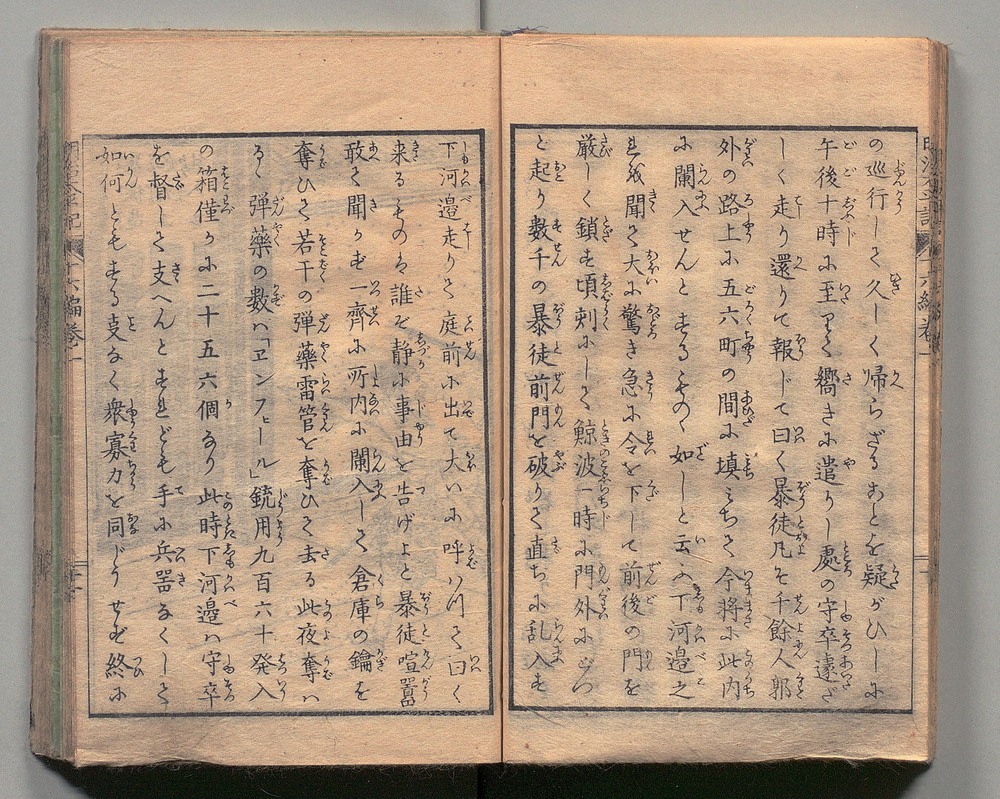 の巡行して久しく帰らざることを疑がひしに
午後十時に至りて嚮きに遣りし處の守卒遽だ
しく走り還りて報じて曰く暴徒凡そ千餘人郭
外の路上に五六町の間に填みちて今將に此内
に闌入せんとするものゝ如しと云ふ下河邉之
を聞て大に驚き急に令を下して前後の門を
厳しく鎖せ頃刺にして鯨波一時に門外に
と起り数千の暴徒前門を破りて直ちに乱入す
下河邉走りて庭前に出て大いに呼ハつて曰く
来るものは誰ぞ静に事由を告げよと暴徒喧囂
敢て聞かず一齊に所内に闌入して倉庫の鑰を
奪ひて若干の弾藥雷管を奪ひて去る此夜奪ハ
るゝ弾藥の数ハ「ヱンフェール」銃用九百六十発入
の箱僅かに二十五六個なり此時下河邉ハ守卒
を督して支へんとすれども手に兵器なくして
如何ともすること支なく衆寡力を同じうせず終に
明治太平記
十六編巻一